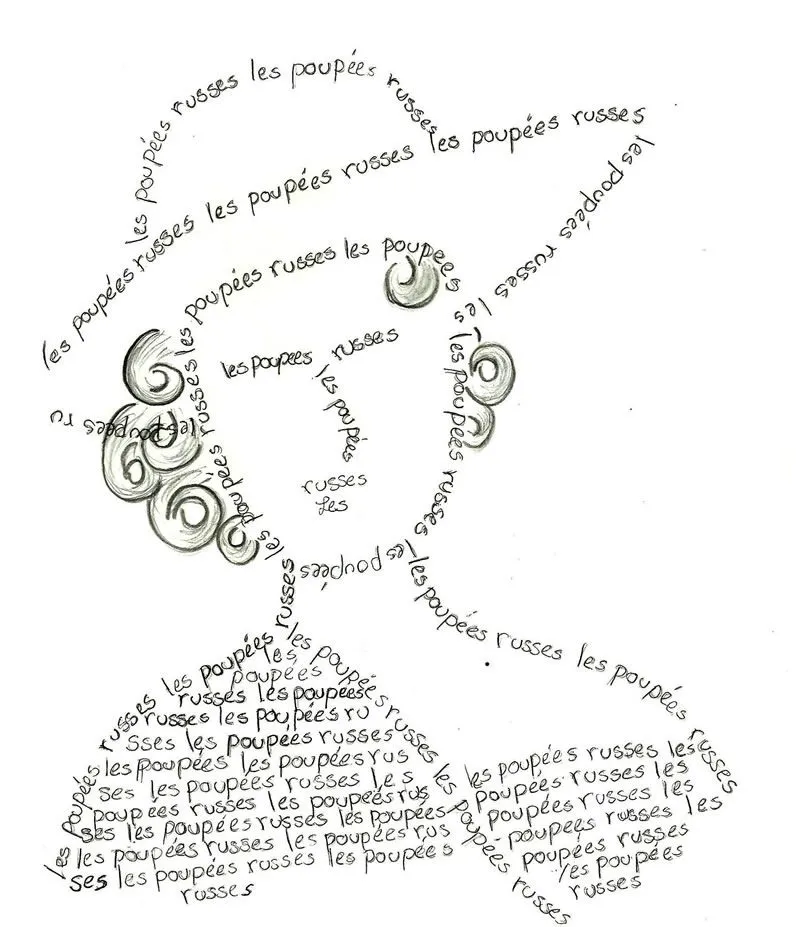 les poupées russes les poupées russes
les poupées russes les poupées russes les poupées russes
les poupées russes les
les poupées russes les poupées
les poupées russes
les poupées ru
les poupées russes
les poupées russes
les poupées
russes
les
les poupées russes
les poupées
russes
les poupées russes les poupées russes
les poupées russes
les poupées russes les poupées russes
les
poupées
russes les poupées
russes les poupées ru
sses les poupées russes
les poupées les poupées rus
ses les poupées russes les
poupées russes les poupées rus
ses les poupées russes les poupées
les poupées russes les poupées rus
ses les poupées russes les poupées
russes
les poupées russes les
poupées russes les
poupées russes les
poupées russes les
poupées russes
les poupées
russes